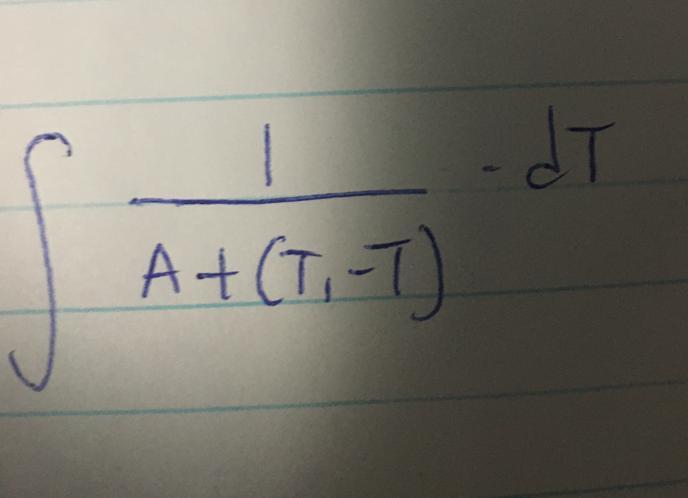 ∫ 1 / A + (T₁ - T) · dT